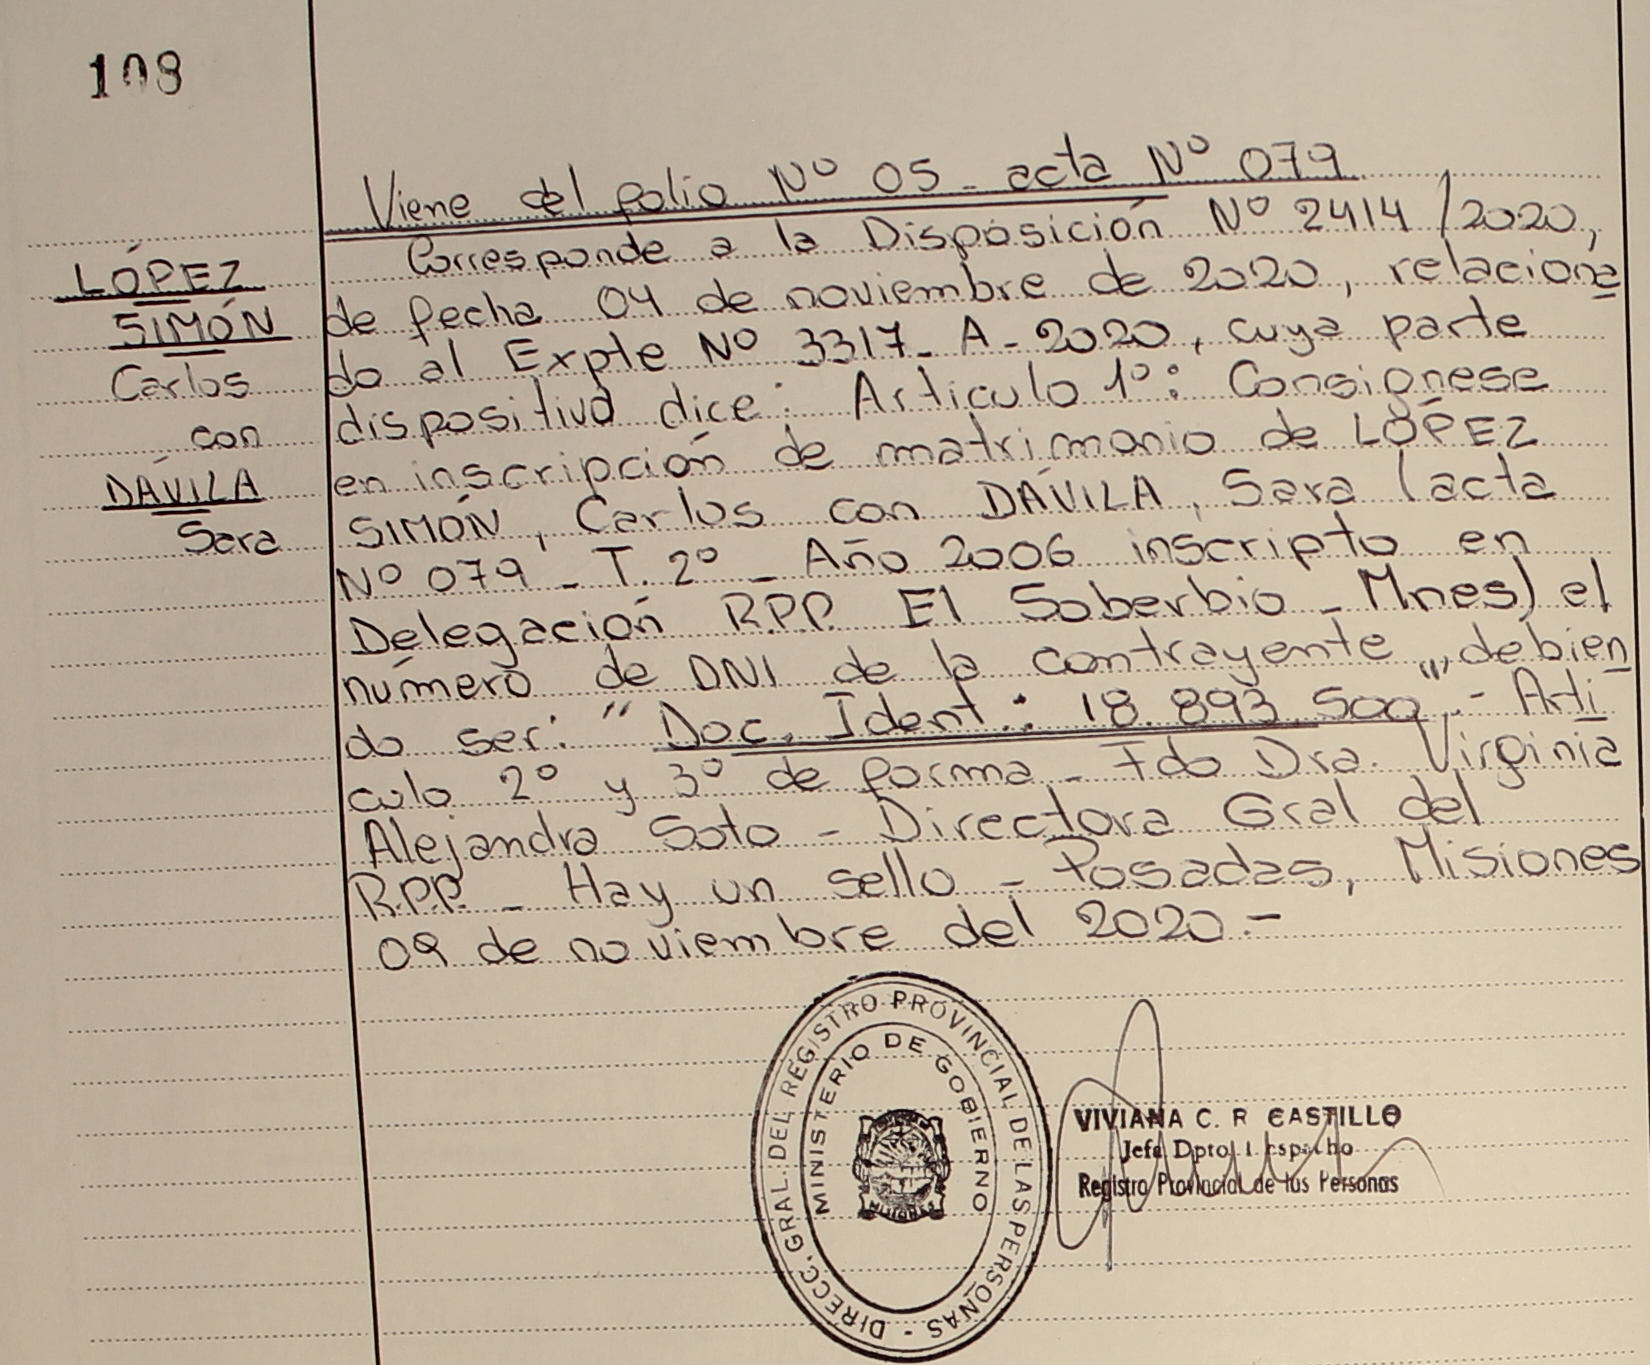 108
Viene del folio Nº 05 - acta Nº 079
Corresponde a la Disposición Nº 2414/2020,
de fecha 04 de noviembre de 2020, relaciona
do al Expte Nº 3317 - A - 2020, cuya parte
dispositiva dice: Articulo 1º: Consignese
en inscripción de matrimonio de LÓPEZ
SIMÓN, Carlos con DÁVILA, Sara (acta
Nº 079 - T. 2º - Año 2006 inscripto en
Delegación R.P.P. El Soberbio - Mnes) el
número de DNI de la contrayente, debien
do ser: "Doc. Ident.: 18.893.500" - Arti
culo 2º y 3º de forma - Fdo Dra. Virginia
Alejandra Soto - Directora Gral del
R.P.P. - Hay un sello - Posadas, Misiones
09 de noviembre del 2020.-
LÓPEZ
SIMÓN
Carlos
con
DÁVILA
Sara
DIRECC. GRAL. DEL REGISTRO PROVINCIAL DE LAS PERSONAS -
MINISTERIO DE GOBIERNO
MISIONES
VIVIANA C. R CASTILLO
Jefa Dpto.
Registro Provincial de las Personas